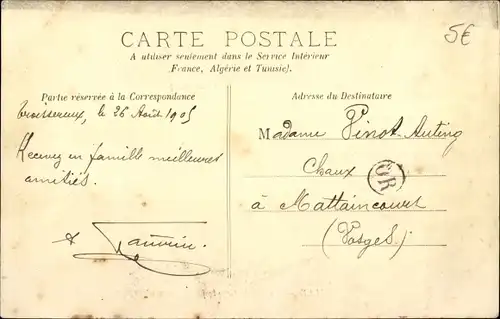 5€
CARTE POSTALE
A utiliser seulement dans le Service Intérieur
(France, Algérie et Tunisie).
Partie réservée à la Correspondance
Adresse du Destinataire
Troissereux, le 26 Août 1905
Recevez en famille meilleures
amitiés.
Madame Pinot-Auting
Chaux
OR
à Mattaincourt
(Vosges)